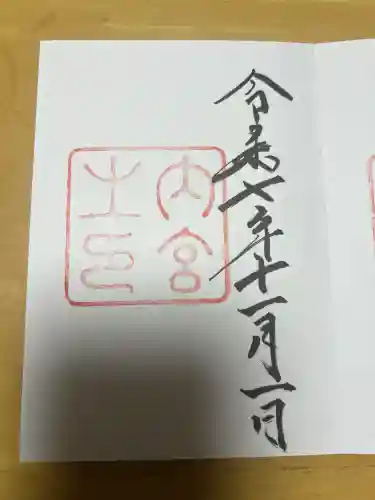 令和七年十一月一日
内宮
之印